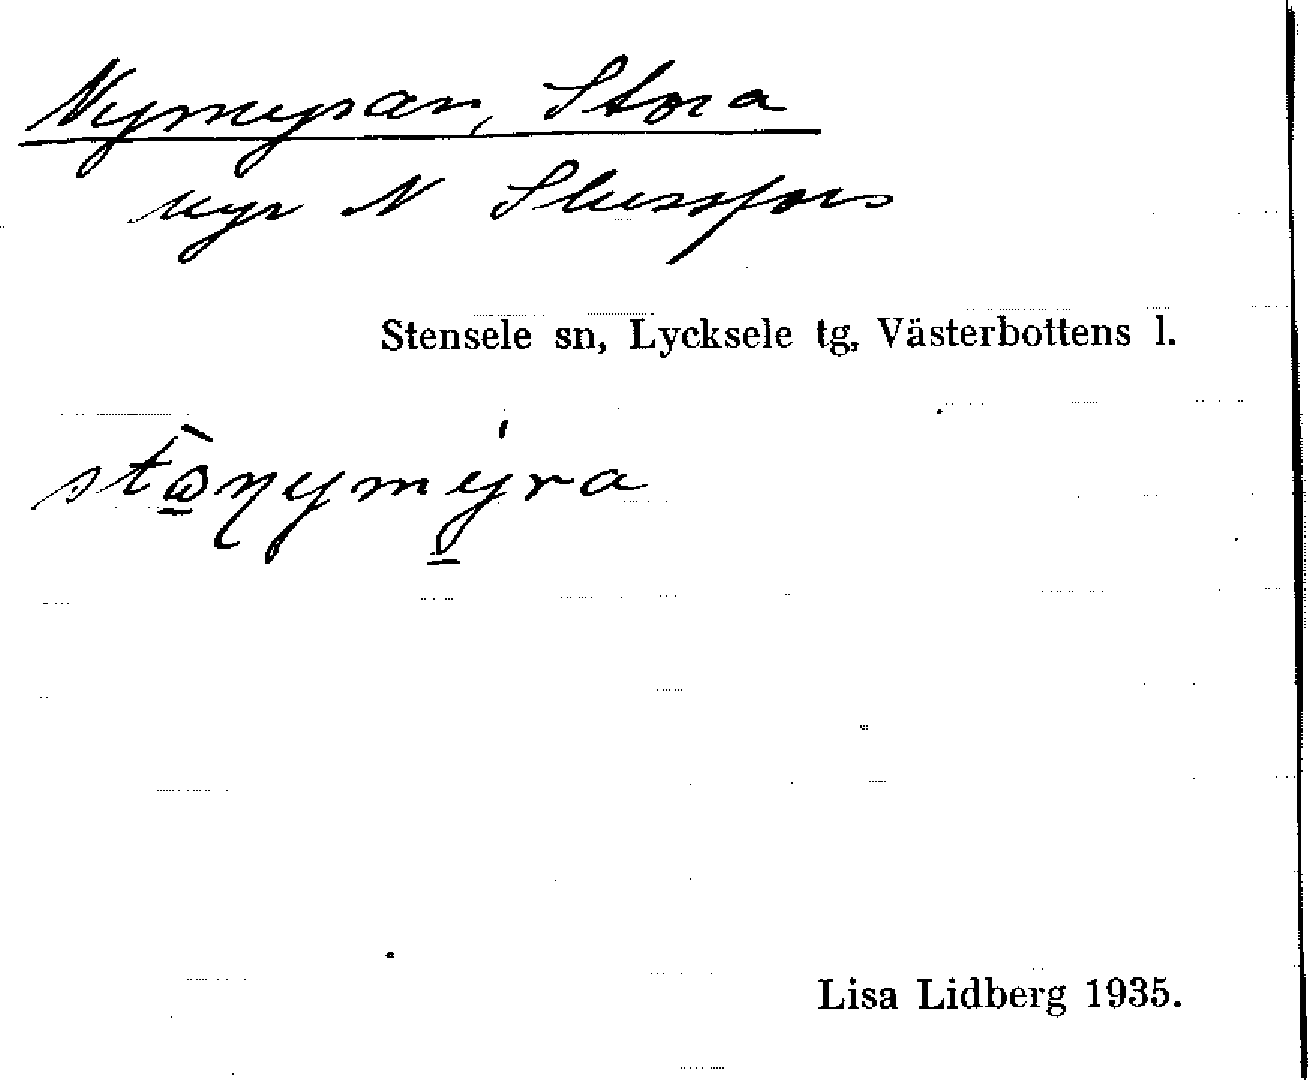 Nymyran, Stora
myr N Slussfors
Stensele sn, Lycksele tg, Västerbottens l.
stɷ̀ŋymýra
Lisa Lidberg 1935.